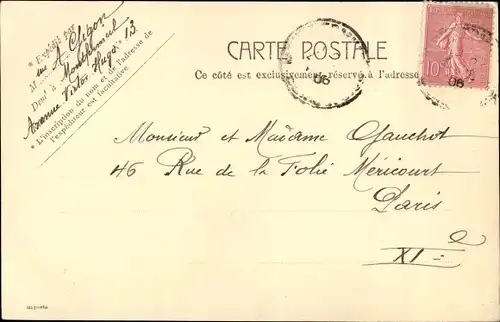 * Expédié par
M. A. Chopon
Dem^t à Montreuil
Avenue Victor Hugo 13
* L'inscription du nom et de l'adresse de
l'expéditeur est facultative.
CARTE POSTALE
Ce côté est exclusivement réservé à l'adresse
06
10
06
Monsieur et Madame Gauchot
46 Rue de la Folie Méricourt
Paris
XI e